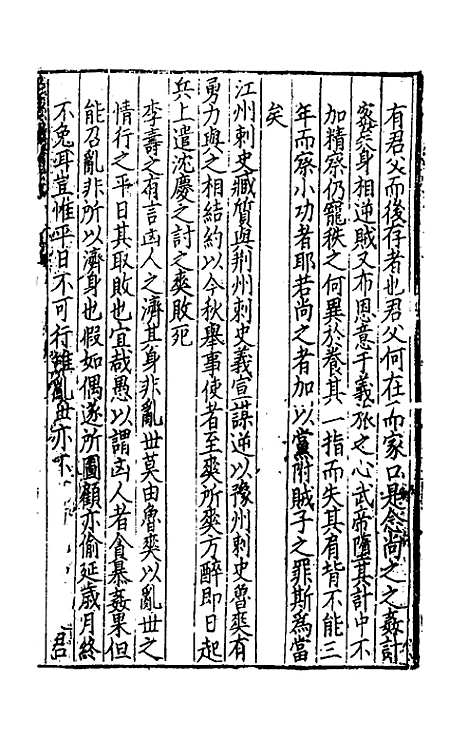 有君父而後存者也君父何在而家口是念尚之之姦計
委身相逆賊又布恩意于義旅之心武帝墮其計中不
加精察仍寵秩之何異於養其一指而失其肩背不能三
年而察小功者耶若尚之者加以黨附賊子之罪斯為當
矣
江州刺史臧質與荆州刺史義宣謀逆以豫州刺史魯爽有
勇力與之相結約以今秋舉事使者至爽所爽方醉即日起
兵上遣沈慶之討之爽敗死
李壽之有言凶人之濟其身非亂世莫由魯爽以亂世之
情行之平日其取敗也宜哉愚以謂凶人者貪暴姦果但
能召亂非所以濟身也假如偶遂所圖顧亦偷延歲月終
不免耳豈惟平日不可行雖亂世亦不
君